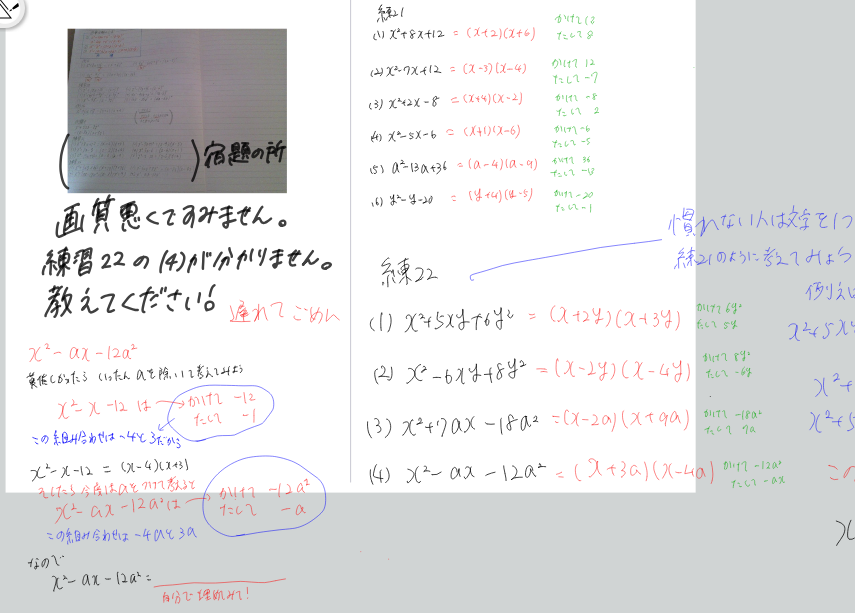 宿題の所
画質悪くてすみません。
練習22の(4)が分かりません。
教えてください!
遅れてごめん
x²-ax-12a²
難しかったら いったん aを除いて考えてみよう
x²-x-12は → かけて -12
たして -1
この組み合わせは -4と3だから
x²-x-12 = (x-4)(x+3)
そしたら 今度はaをつけて考えると
x²-ax-12a²は → かけて -12a²
たして -a
この組み合わせは -4aと3a
なので
x²-ax-12a²=
自分で埋めてみて!
練21
(1) x²+8x+12 = (x+2)(x+6) かけて12
たして8
(2) x²-7x+12 = (x-3)(x-4) かけて 12
たして -7
(3) x²+2x-8 = (x+4)(x-2) かけて -8
たして 2
(4) x²-5x-6 = (x+1)(x-6) かけて -6
たして -5
(5) a²-13a+36 = (a-4)(a-9) かけて 36
たして -13
(6) y²-y-20 = (y+4)(y-5) かけて -20
たして -1
慣れない人は文字を1つ
練21のように考えてみよう
例えば
x²+5xy
x²+
x²+5
この
x
練22
(1) x²+5xy+6y² = (x+2y)(x+3y) かけて 6y²
たして 5y
(2) x²-6xy+8y² = (x-2y)(x-4y) かけて 8y²
たして -6y
(3) x²+7ax-18a² = (x-2a)(x+9a) かけて -18a²
たして 7a
(4) x²-ax-12a² = (x+3a)(x-4a) かけて -12a²
たして -ax